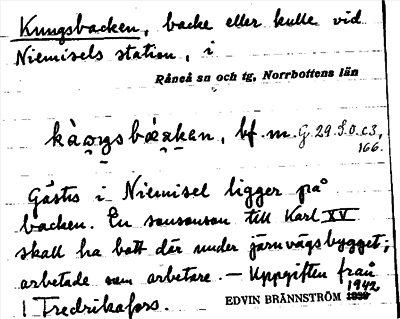 Kungsbacken, backe eller kulle vid
Niemisels station, i
Råneå sn och tg, Norrbottens län
bf. m. G. 29. S.O. c3,
166.
Gästis i Niemisel ligger på
backen. En sonsonson till Karl XV
skall ha bott där under järnvägsbygget;
arbetade som arbetare. — Uppgiften från
1942
EDVIN BRÄNNSTRÖM 1938
i Fredrikafors.